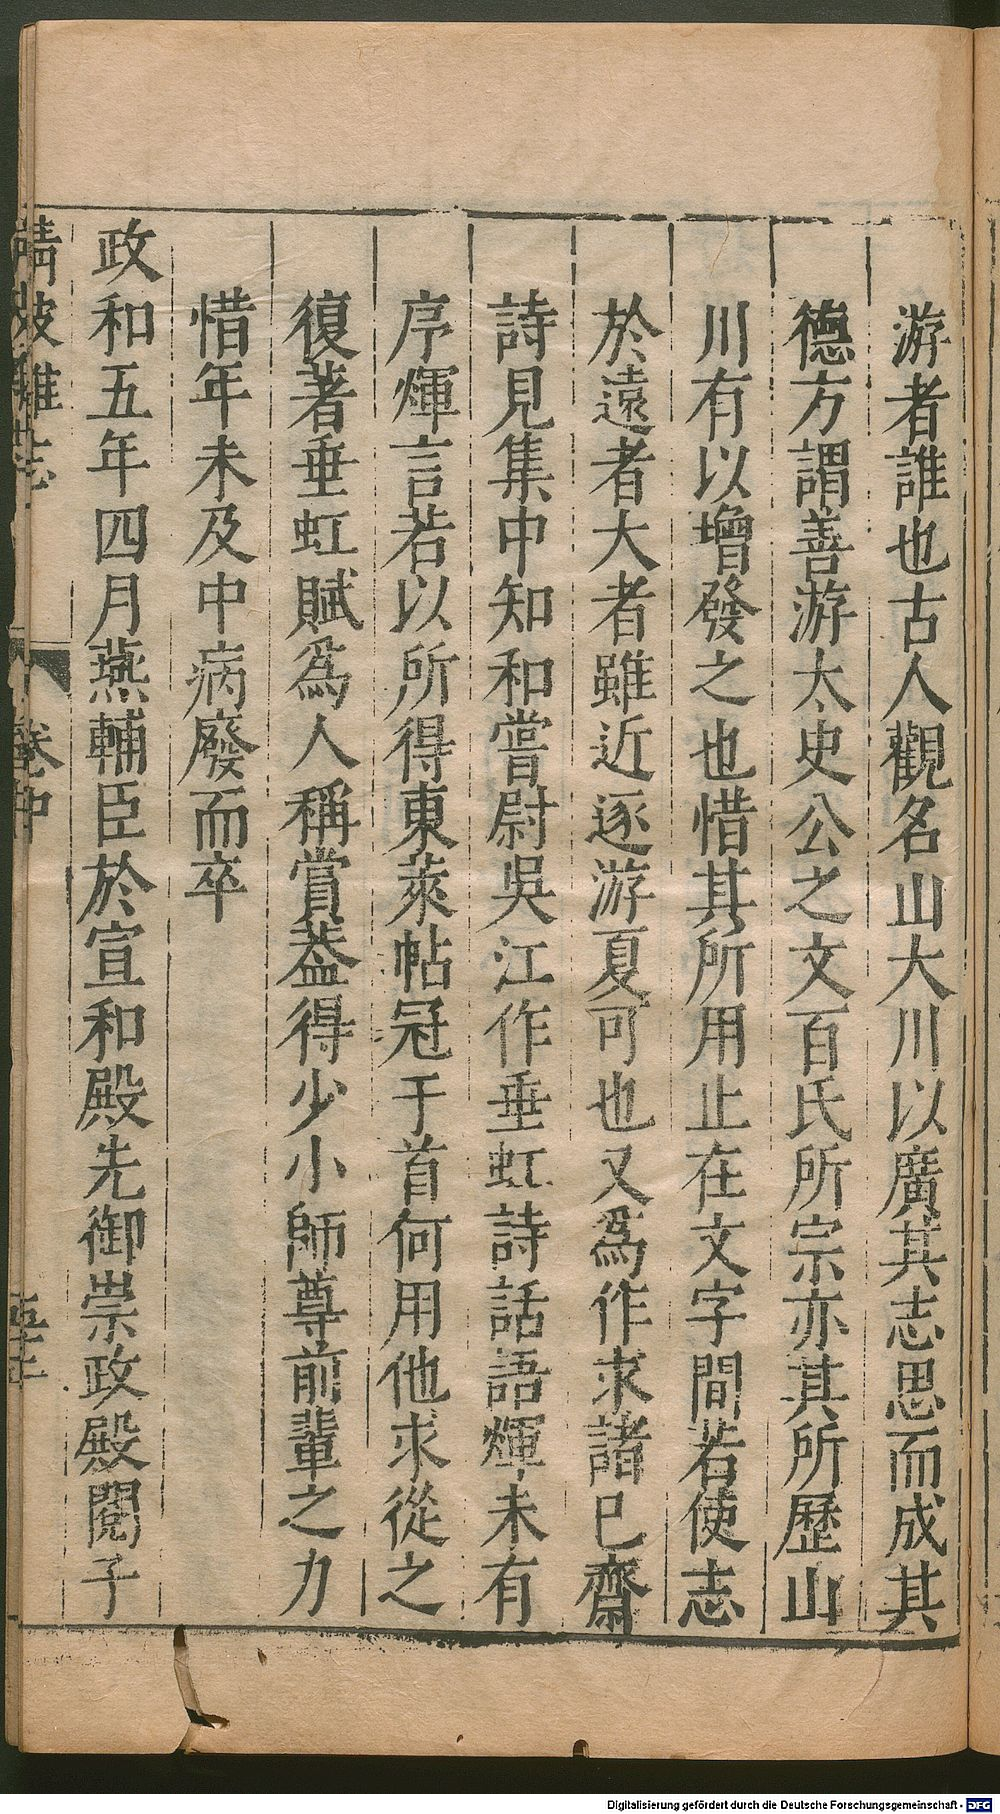 游者誰也古人觀名山大川以廣其志思而成其
德方謂善游太史公之文百氏所宗亦其所歷山
川有以增發之也惜其所用止在文字間若使志
於遠者大者雖近逐游夏可也又爲作求諸已齋
詩見集中知和嘗尉吳江作垂虹詩話語煇未有
序煇言若以所得東萊帖冠于首何用他求從之
復著垂虹賦爲人稱賞葢得少小師尊前輩之力
惜年未及中病廢而卒
政和五年四月燕輔臣於宣和殿先御崇政殿閱子
清波雜志 卷中
Digitalisierung gefördert durch die Deutsche Forschungsgemeinschaft - DFG